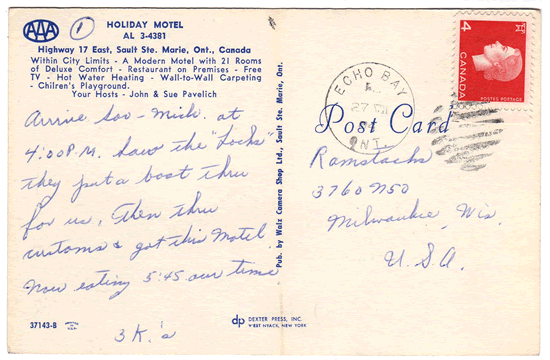 AAA
1
HOLIDAY MOTEL
AL 3-4381
Highway 17 East, Sault Ste. Marie, Ont., Canada
Within City Limits - A Modern Motel with 21 Rooms
of Deluxe Comfort - Restaurant on Premises - Free
TV - Hot Water Heating - Wall-to-Wall Carpeting
- Chilren's Playground.
Your Hosts - John & Sue Pavelich
Arrive Soo-Mich. at
4:00 P.M. Saw the "Locks"
they put a boat thru
for us. Then thru
customs & got this Motel.
Now eating 5:45 our time
3 K.'s
37143-B
Pub. by Walz Camera Shop Ltd., Sault Ste. Marie, Ont.
dp DEXTER PRESS, INC.
WEST NYACK, NEW YORK
4
CANADA
POSTES POSTAGE
ECHO BAY
27
ONT.
Post Card
Ramstacks
3760 N 50
Milwaukee, Wis.
U.S.A.